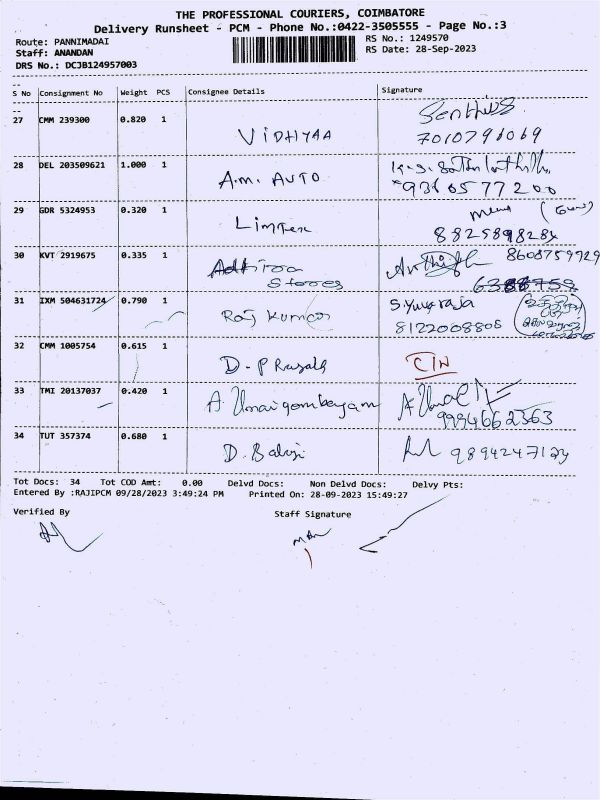 THE PROFESSIONAL COURIERS, COIMBATORE
Delivery Runsheet - PCM - Phone No.:0422-3505555 - Page No.:3
Route: PANNIMADAI
RS No.: 1249570
Staff: ANANDAN
RS Date: 28-Sep-2023
DRS No.: DCJB124957003
S No Consignment No Weight PCS Consignee Details Signature
27 CMM 239300 0.820 1
VIDHYAA
7010791069
28 DEL 203509621 1.000 1
A.M. AUTO
9360577200
29 GDR 5324953 0.320 1
8825898284
30 KVT 2919675 0.335 1 8608759729
Stores
31 IXM 504631724 0.790 1
Raj Kumar
S.Yuvaraja
8122008808
32 CMM 1005754 0.615 1
D. Prasath
33 TMI 20137037 0.420 1
9994662363
34 TUT 357374 0.680 1
D. Balaji
Tot Docs: 34 Tot COD Amt: 0.00 Delvd Docs: Non Delvd Docs: Delvy Pts:
Entered By :RAJIPCM 09/28/2023 3:49:24 PM Printed On: 28-09-2023 15:49:27
Verified By Staff Signature